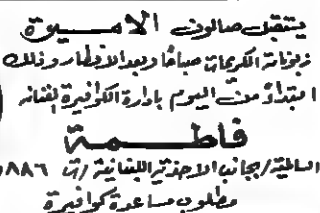 يستقبل صالون الاميرة
زبوناته الكريمات صباحًا وبعد الافطار وذلك
ابتداءً من اليوم بادارة الكوافيرة الفنانه
فاطمة
السالمية / بجانب الاحذية اللبنانية / ت ٨٨٦
مطلوب مساعدة كوافيرة